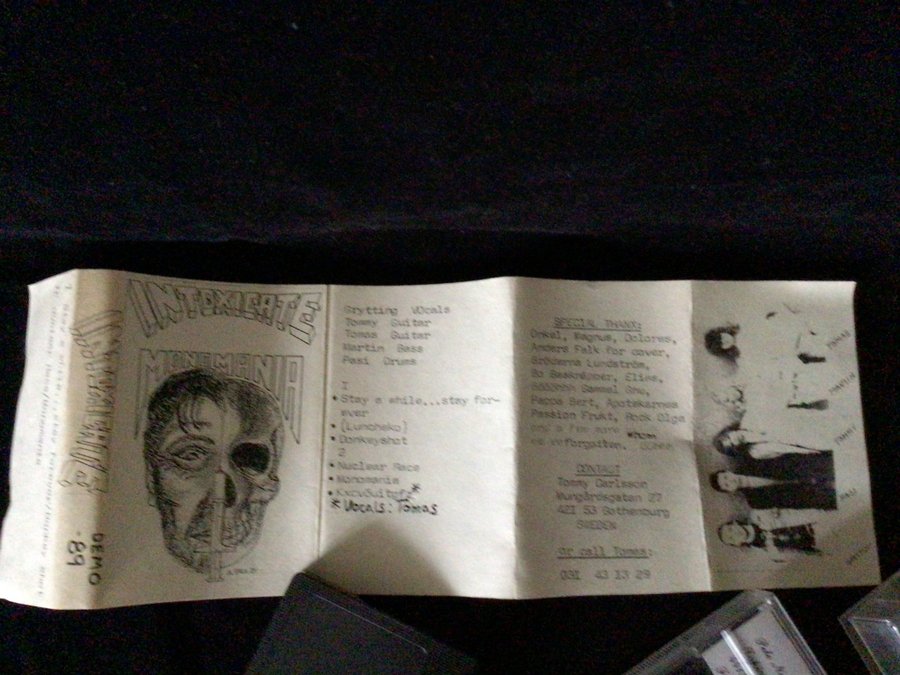 INTOXICATE
MONOMANIA
DEMO
-89
Grytting Vocals
Tommy Guitar
Tomas Guitar
Martin Bass
Pasi Drums
I
• Stay a while...stay for-
ever
• (Luncheko)
• Donkeyshot
2
• Nuclear Race
• Monomania
*
* Vocals: Tomas
SPECIAL THANX:
Onkel, Magnus, Dolores,
Anders Falk for cover,
Bröderna Lundström,
Elias,
Gammel One,
Pappa Bert, Apotekarnes
Passion Frukt, Rock Olga
and a few more whom
we unforgotten.
CONTACT
Tommy Carlsson
Mungårdsgatan 27
421 53 Gothenburg
SWEDEN
Or call Tomas:
031 43 13 29
TOMAS
MARTIN
TOMMY
PASI